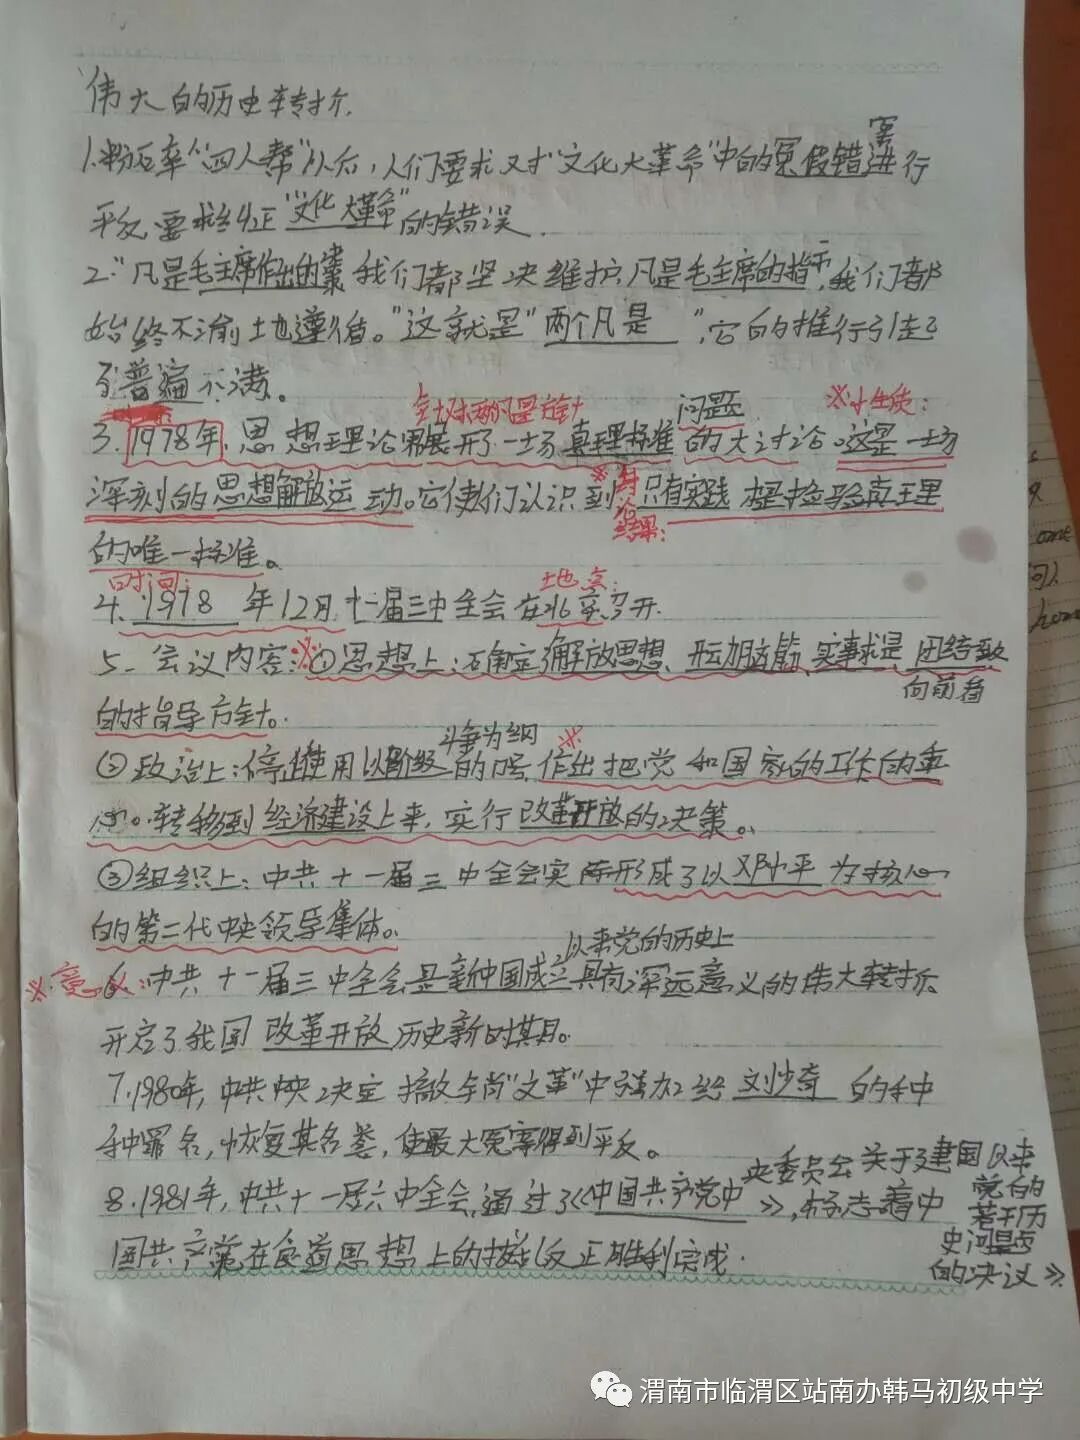 伟大的历史转折.
1.粉碎"四人帮"以后,人们要求对"文化大革命"中的冤假错案进行
平反,要求纠正"文化大革命"的错误.
2."凡是毛主席作出的决策我们都坚决维护,凡是毛主席的指示,我们都
始终不渝土地遵循。"这就是"两个凡是",它的推行引起了
普遍不满。
针对两个凡是方针
问题
※性质:
3.1978年,思想理论界展开了一场真理标准的大讨论.这是一场
深刻的思想解放运动。它使人们认识到只有实践才是检验真理
※讨论结果:
的唯一标准。
时间:
地点:
4.1978年12月,十一届三中全会在北京召开.
5.会议内容:※①思想上:确定了解放思想、开动脑筋、实事求是、团结一致
向前看
的指导方针。
②政治上:停止使用以阶级斗争为纲的口号,※作出把党和国家的工作的重
心。转移到经济建设上来,实行改革开放的决策。
③组织上:中共十一届三中全会实际形成了以邓小平为核心
的第二代中央领导集体。
以来党的历史上
※意义:中共十一届三中全会是新中国成立具有深远意义的伟大转折.
开启了我国改革开放历史新时期。
7.1980年,中共中央决定撤销"文革"中强加给刘少奇的种
种罪名,恢复其名誉,使最大冤案得到平反。
8.1981年,中共十一届六中全会,通过了《中国共产党中央委员会关于建国以来
党的
若干历
史问题
的决议》
》,标志着中
国共产党在指导思想上的拨乱反正胜利完成.
渭南市临渭区站南办韩马初级中学